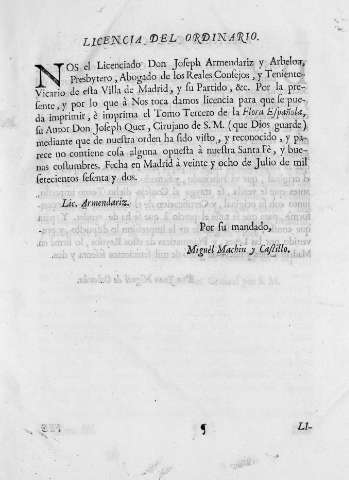 LICENCIA DEL ORDINARIO.
NOS el Licenciado Don Joseph Armendariz y Arbeloa,
Presbytero, Abogado de los Reales Consejos, y Teniente-
Vicario de esta Villa de Madrid, y su Partido, &c. Por la pre-
sente, y por lo que à Nos toca damos licencia para que se pue-
da imprimir, è imprima el Tomo Tercero de la Flora Española,
su Autor Don Joseph Quer, Cirujano de S. M. (que Dios guarde)
mediante que de nuestra orden ha sido visto, y reconocido, y pa-
rece no contiene cosa alguna opuesta à nuestra Santa Fè, y bue-
nas costumbres. Fecha en Madrid à veinte y ocho de Julio de mil
setecientos sesenta y dos.
Lic. Armendariz.
Por su mandado,
Miguèl Machin y Castillo.
¶ LI-